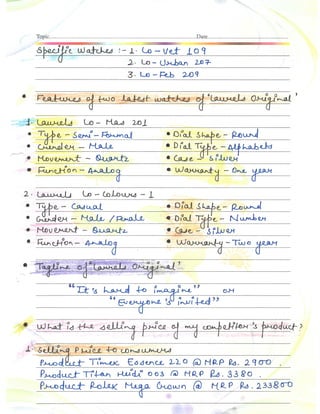 Topic Date
Specific Watches :- 1. Lo-Vet 109
2. Lo-Urban 107
3. Lo-Feb 209
• Features of two latest watches of 'Laurels Original'
1. Laurels Lo-Mas 201
• Type - Semi-Formal • Dial Shape - Round
• Gender - Male • Dial Type - Alphabets
• Movement - Quartz • Case - Silver
• Function - Analog • Warranty - One year
2. Laurels Lo-Colours-1
• Type - Casual • Dial Shape - Round
• Gender - Male / Female • Dial Type - Number
• Movement - Quartz • Case - Silver
• Function - Analog • Warranty - Two year
• Tagline of "Laurels Original".
"It's hard to imagine" or
"Everyone's invited"
• What is the selling price of my competitor's product?
1. Selling Price to consumers
Product Timex Essence 220 @ MRP Rs. 2900.
Product Titan Heidi 003 @ MRP Rs. 3380.
Product Rolex Mega Crown @ MRP Rs. 233800